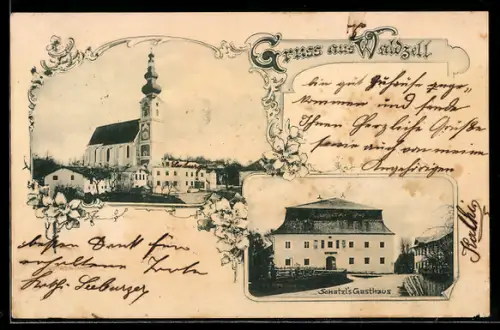 Gruss aus Waldzell
bin gut zuhause ange-
kommen und sende
Ihnen herzliche Grüße
sowie auch von meinen
Angehörigen
besten Dank für
erhaltene Torte
Kath. Seeburger
Schatzl's Gasthaus